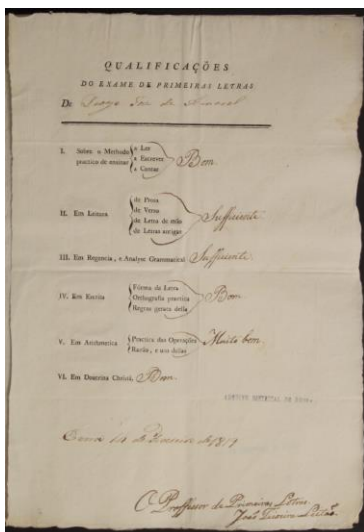 QUALIFICAÇÕES
DO EXAME DE PRIMEIRAS LETRAS
De Joze de
I. Sobre o Methodo practico de ensinar
a Ler
a Escrever
a Contar
Bom
II. Em Leitura
de Prosa
de Verso
de Letra de mão
de Letras antigas
Sufficiente
III. Em Regencia, e Analyse Grammatical Sufficiente.
IV. Em Escrita
Fórma da Letra
Orthografia practica
Regras geraes della
Bom
V. Em Arithmetica
Practica das Operações
Razão, e uso dellas
Muito bom.
VI. Em Doutrina Christã. Bom.
14 de de 1819
O Proffessor de Primeiras Letras
João Teixeira